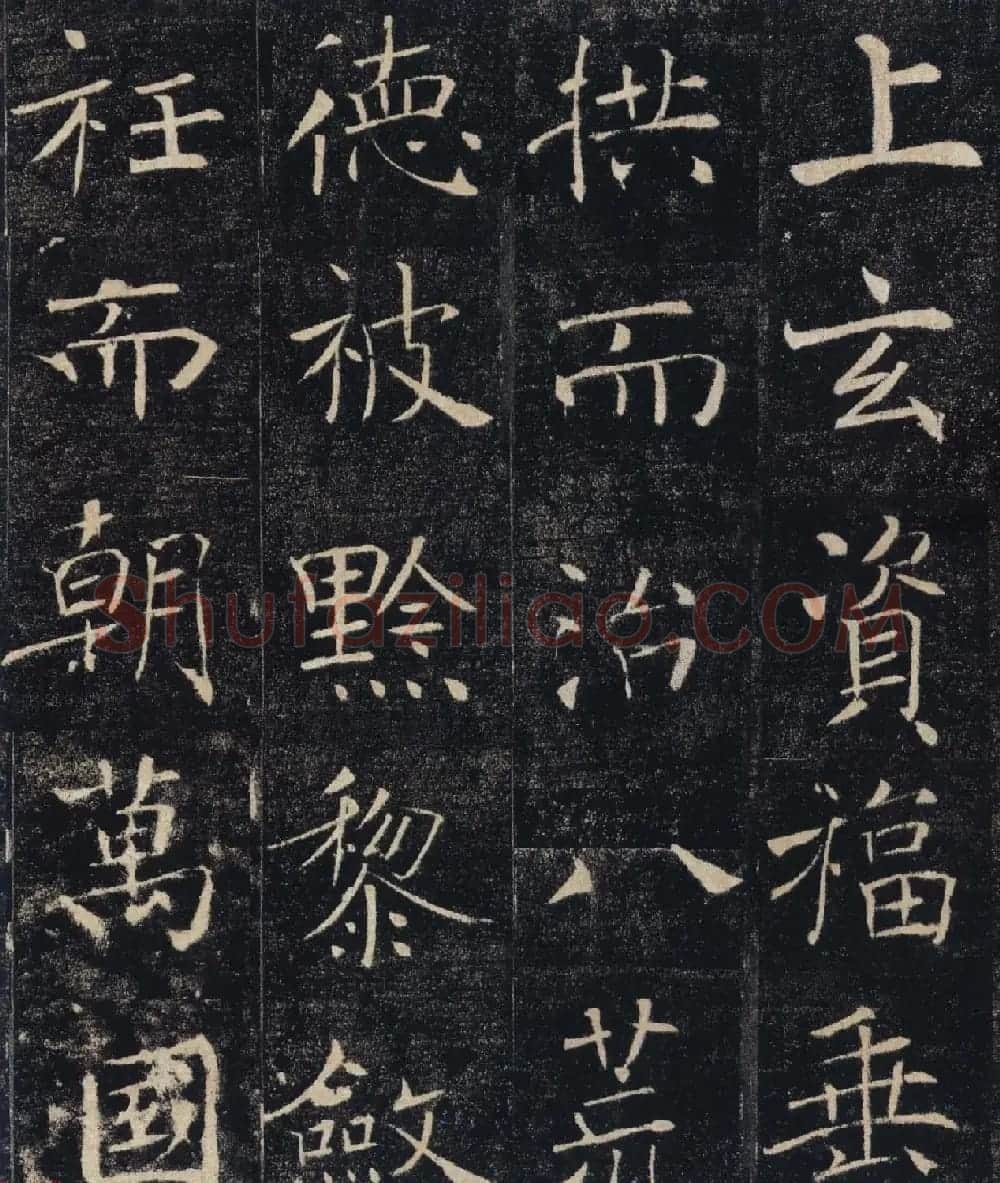 上玄資福垂
拱而治八荒
德被黔黎斂
衽而朝萬國
Shufaziliao.COM